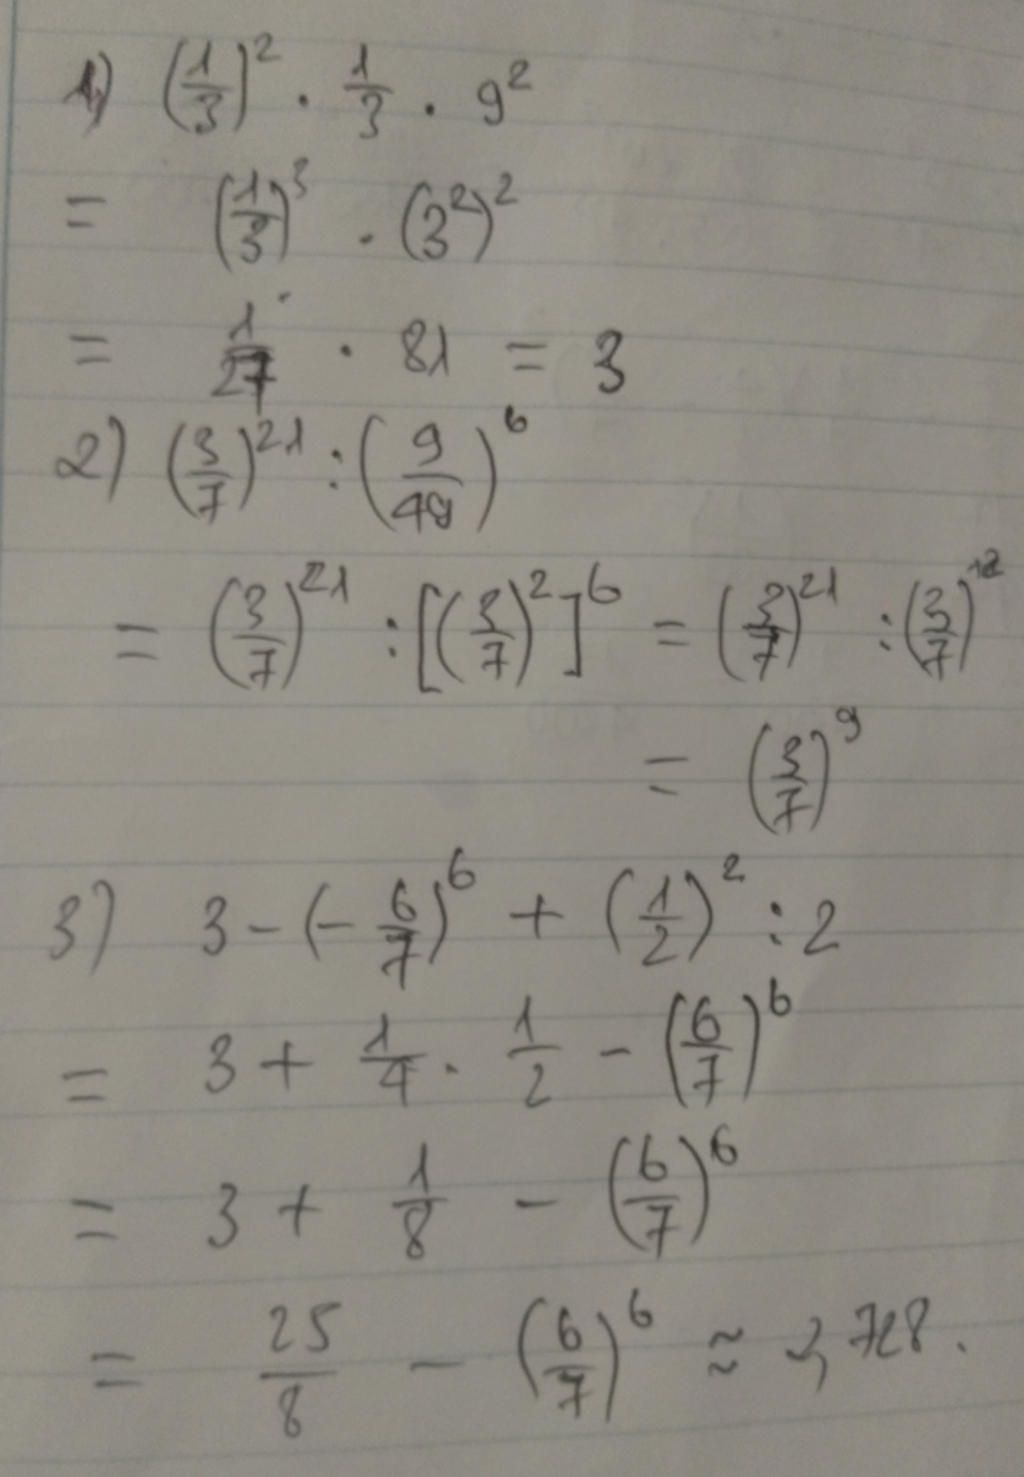 1) (1/3)² · 1/3 · 9²
= (1/3)³ · (3²)²
= 1/27 · 81 = 3
2) (3/7)²¹ : (9/49)⁶
= (3/7)²¹ : [(3/7)²]⁶ = (3/7)²¹ : (3/7)¹²
= (3/7)⁹
3) 3 - (-6/7)⁶ + (1/2)² : 2
= 3 + 1/4 · 1/2 - (6/7)⁶
= 3 + 1/8 - (6/7)⁶
= 25/8 - (6/7)⁶ ≈ 2,728.